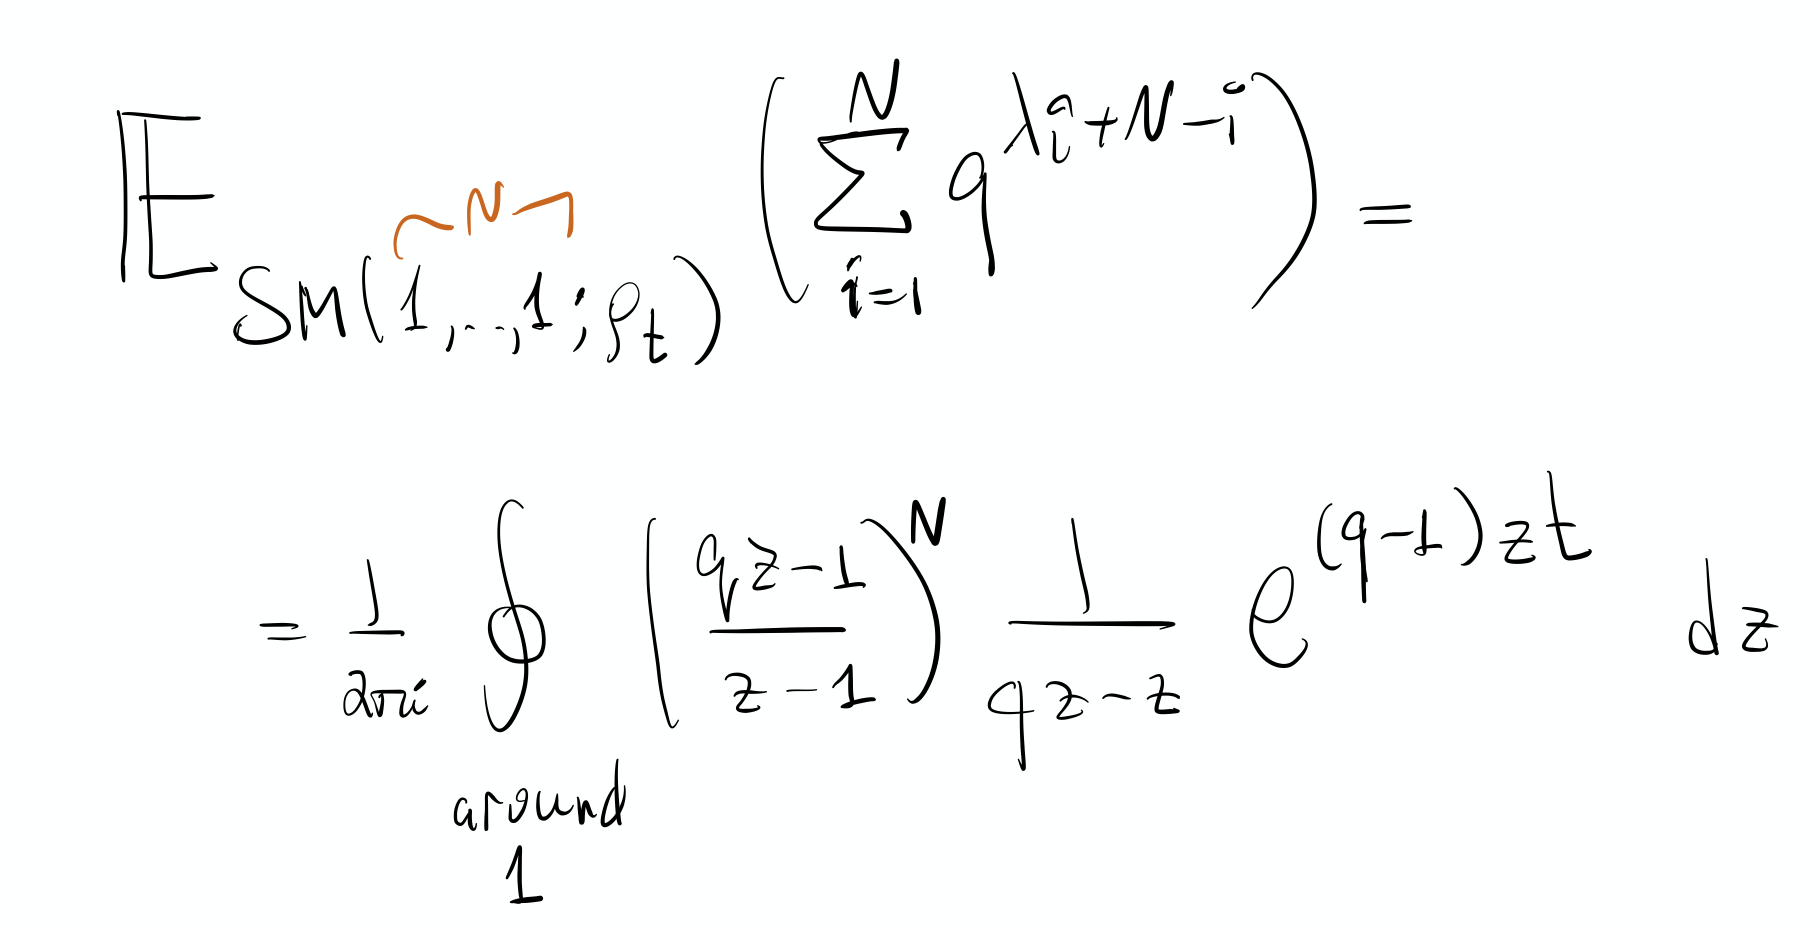 $\mathbb{E}_{SM(\overbrace{1,\ldots,1}^{N};\rho_t)} \left( \sum_{i=1}^{N} q^{\lambda_i + N - i} \right) =$
$= \frac{1}{2\pi i} \oint_{\text{around } 1} \left( \frac{qz-1}{z-1} \right)^N \frac{1}{qz-z} e^{(q-1)zt} dz$